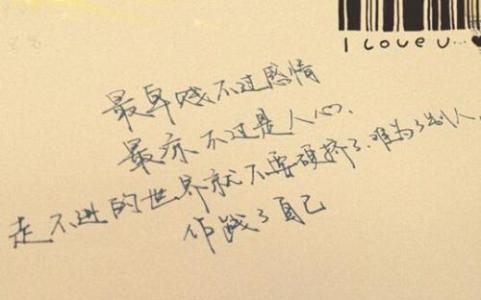 I Love u...
最卑贱不过感情
最凉不过是人心.
走不进的世界就不要硬挤了.难为了别人.
作践了自己